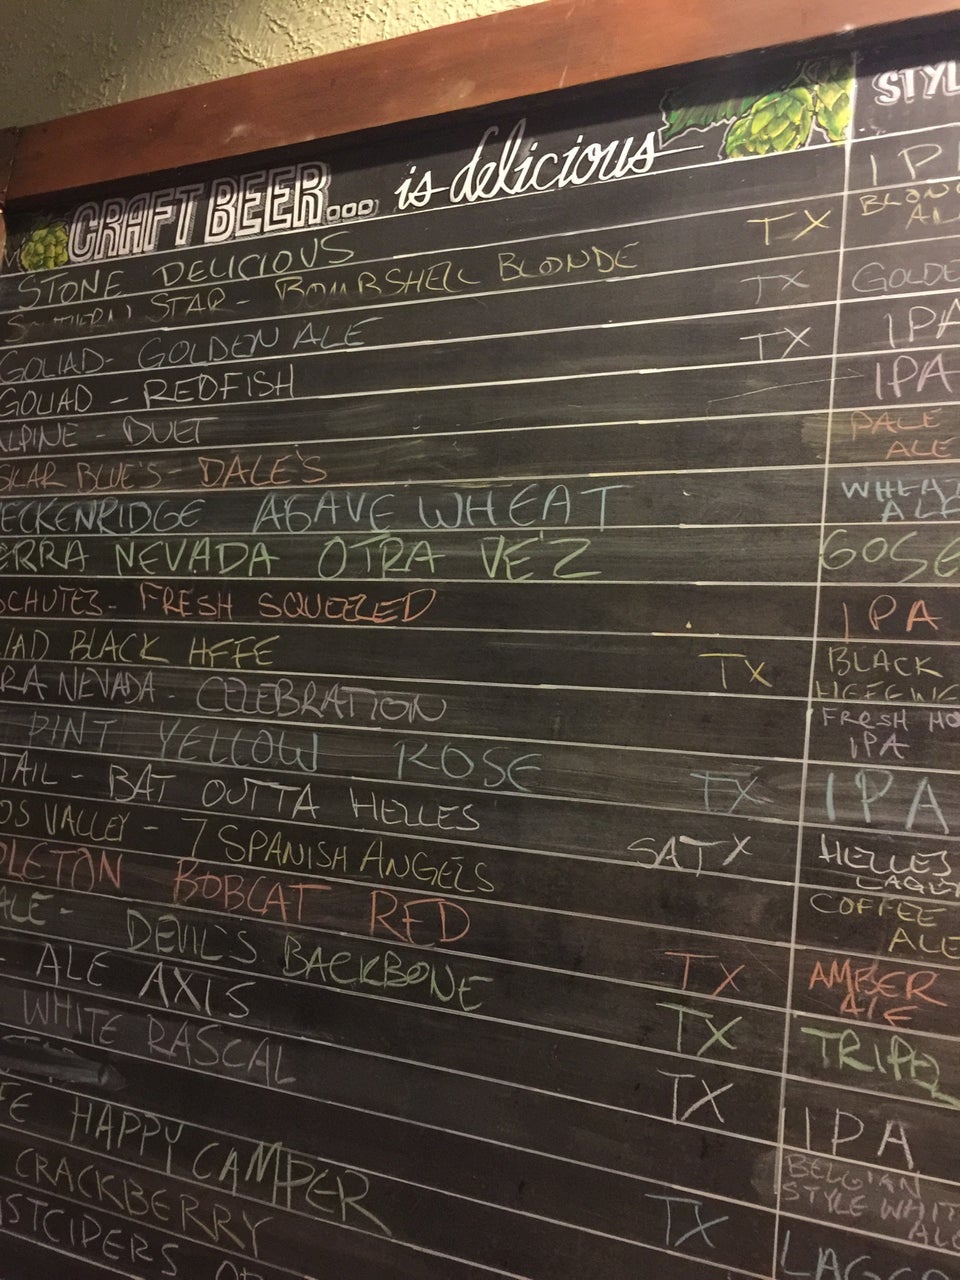 CRAFT BEER... is delicious STYL
STONE DELICIOUS IP
SOUTHERN STAR - BOMBSHELL BLONDE TX BLOND
AL
GOLIAD - GOLDEN ALE TX GOLDE
GOLIAD - REDFISH TX IPA
ALPINE - DUET IPA
SKAR BLUE'S - DALE'S PALE
ALE
ECKENRIDGE AGAVE WHEAT WHEAT
ALE
ERRA NEVADA OTRA VEZ GOSE
SCHUTES - FRESH SQUEEZED IPA
IAD BLACK HEFE TX BLACK
HEFEWE
RA NEVADA - CELEBRATION FRESH HO
IPA
PINT YELLOW ROSE TX IPA
TAIL - BAT OUTTA HELLES SATX HELLES
LAGER
OS VALLEY - 7 SPANISH ANGELS COFFEE
ALE
PLETON BOBCAT RED TX AMBER
ALE
ALE - DEVIL'S BACKBONE TX TRIPEL
- ALE AXIS TX IPA
WHITE RASCAL BELGIAN
STYLE WHIT
ALE
FE HAPPY CAMPER TX LAGE
CRACKBERRY
STCIDERS